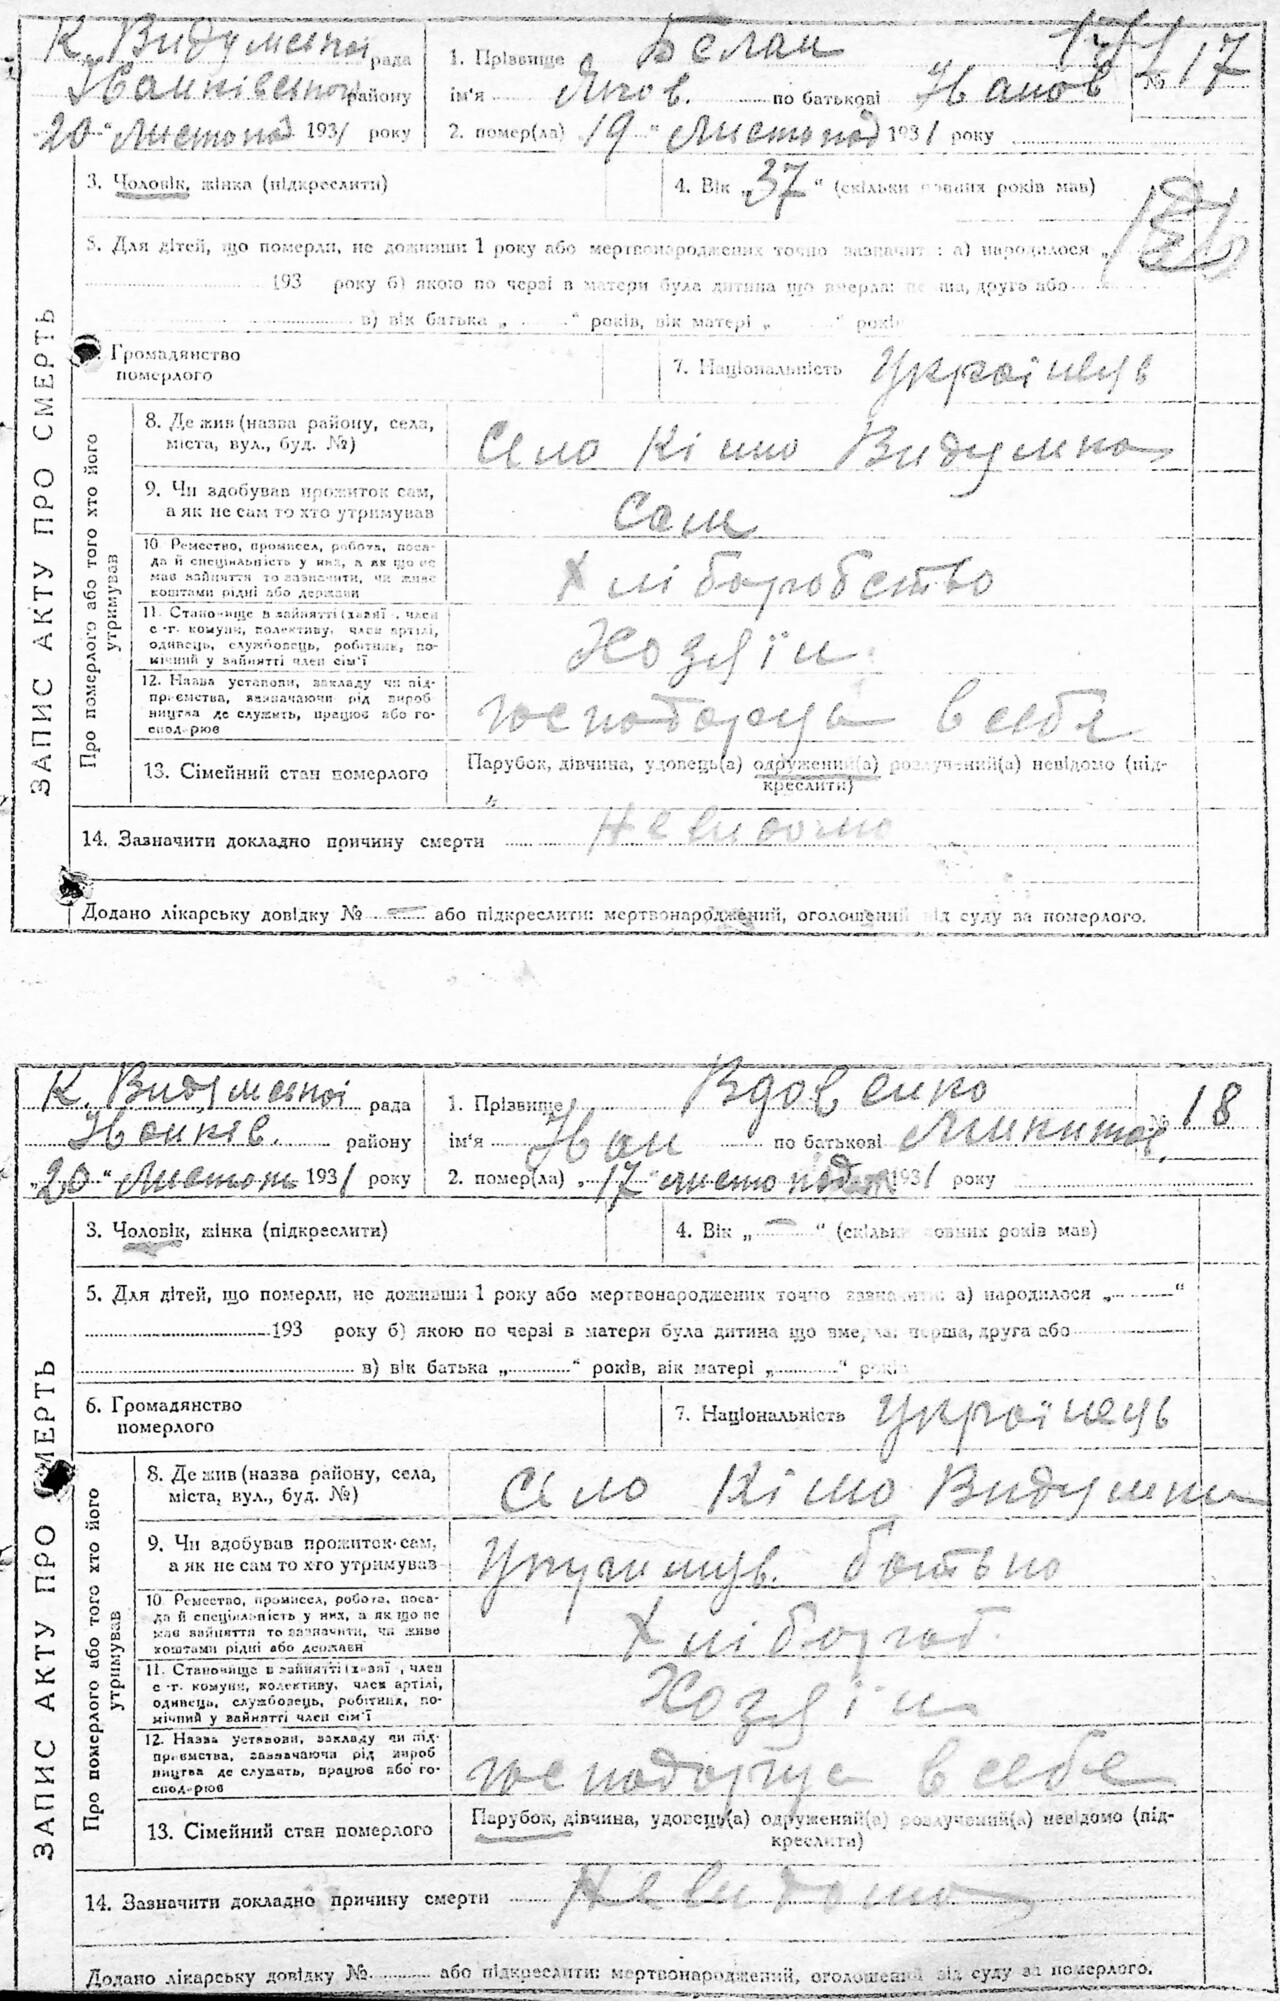 К. Видумської рада
Іванківського району
"20" Листопад 1931 року
1. Прізвище Белан
ім'я Яков. по батькові Іванов
№ 17
2. помер(ла) "19" Листопад 1931 року
3. Чоловік, жінка (підкреслити)
4. Вік „37" (скільки повних років мав)
5. Для дітей, що померли, не доживши 1 року або мертвонароджених точно зазначити: а) народилося „
193 року б) якою по черзі в матери була дитина що вмерла: перша, друга або
в) вік батька „ " років, вік матері „ " років
Громадянство
померлого
7. Національність Українець
ЗАПИС АКТУ ПРО СМЕРТЬ
Про померлого або того хто його
утримував
8. Де жив (назва району, села,
міста, вул., буд. №)
Село Кімо Видумка
9. Чи здобував прожиток сам,
а як не сам то хто утримував
Сам
10. Ремество, промисел, робота, поса-
да й спеціяльність у них, а як що не
має зайняття то зазначити, чи живе
коштами рідні або держави
Хліборобство
11. Становище в зайнятті (хазяї, член
с.-г. комуни, колективу, член артілі,
одинець, службовець, робітник, по-
мічний у зайнятті член сім'ї
Хозяїн
12. Назва установи, закладу чи під-
приємства, зазначаючи рід вироб
ництва де служить, працює або го-
сподарює
господарує в себе
13. Сімейний стан померлого
Парубок, дівчина, удовець(а) одружений(а) розлучений(а) невідомо (під-
креслити)
14. Зазначити докладно причину смерти Невидомо
Додано лікарську довідку № — або підкреслити: мертвонароджений, оголошений від суду за померлого.
К. Видумської рада
Іванків. району
„20" Листопад 1931 року
1. Прізвище Вдовенко
ім'я Іван по батькові Микитов.
№ 18
2. помер(ла) „17" листопад 1931 року
3. Чоловік, жінка (підкреслити)
4. Вік „—" (скільки повних років мав)
5. Для дітей, що померли, не доживши 1 року або мертвонароджених точно зазначити: а) народилося „ "
193 року б) якою по черзі в матери була дитина що вмерла: перша, друга або
в) вік батька „ " років, вік матері „ " років
6. Громадянство
померлого
7. Національність Українець
ЗАПИС АКТУ ПРО СМЕРТЬ
Про померлого або того хто його
утримував
8. Де жив (назва району, села,
міста, вул., буд. №)
Село Кімо Видумка
9. Чи здобував прожиток сам,
а як не сам то хто утримував
батько
10. Ремество, промисел, робота, поса-
да й спеціяльність у них, а як що не
має зайняття то зазначити, чи живе
коштами рідні або держави
Хлібороб.
11. Становище в зайнятті (хазяї, член
с.-г. комуни, колективу, член артілі,
одинець, службовець, робітник, по-
мічний у зайнятті член сім'ї
Хозяїн
12. Назва установи, закладу чи під-
приємства, зазначаючи рід вироб
ництва де служить, працює або го-
сподарює
господарує в себе
13. Сімейний стан померлого
Парубок, дівчина, удовець(а) одружений(а) розлучений(а) невідомо (під-
креслити)
14. Зазначити докладно причину смерти Невидомо
Додано лікарську довідку № або підкреслити: мертвонароджений, оголошений від суду за померлого.